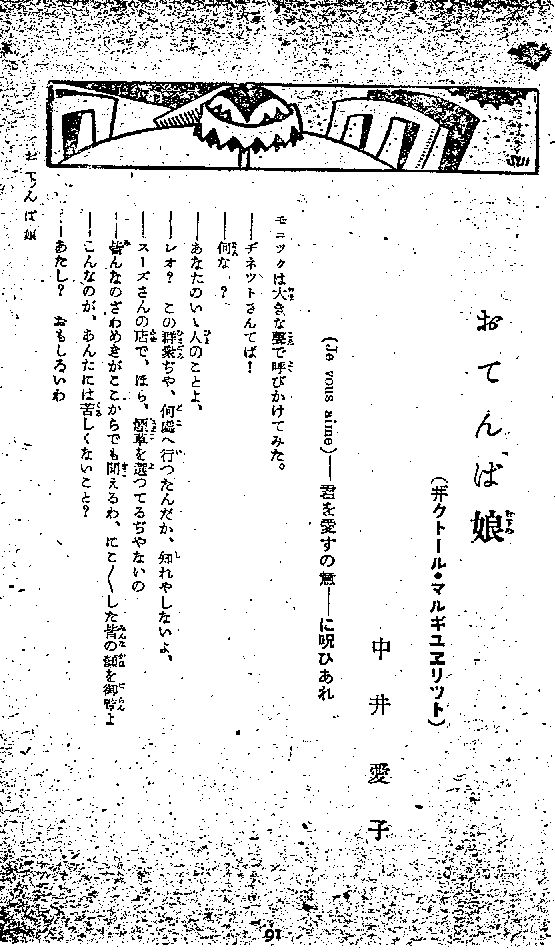 おてんば娘
(井クトール・マルギユヱリツト)
中井愛子
(Je vous aime)――君を愛すの意――に呪ひあれ
モニツクは大きな聲で呼びかけてみた。
――ヂネツトさんてば!
――何な?
――あなたのいゝ人のことよ、
――レオ? この群衆ぢや、何處へ行つたんだか、知れやしないよ、
――スーズさんの店で、ほら、煙草を選つてるぢやないの
――皆んなのざわめきがここからでも聞えるわ、にこ〳〵した皆の顔を御覧よ
――こんなのが、あんたには苦しくないこと?
――あたし? おもしろいわ
おてんば娘
91